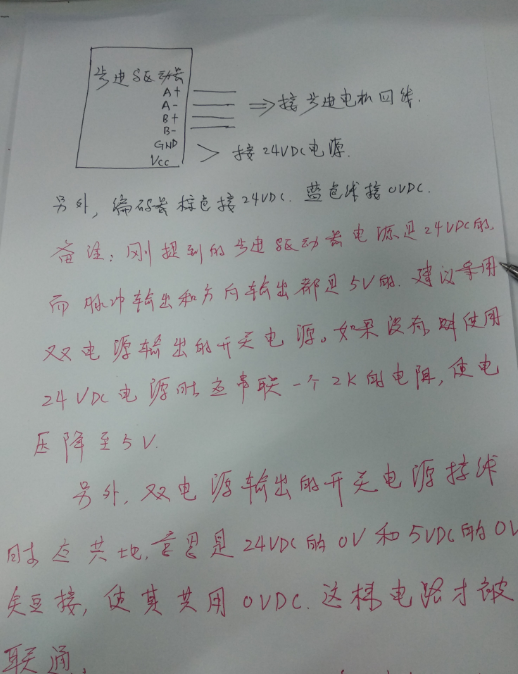 步进驱动器
A+
A-
B+
B-
GND
Vcc
⇒接步进电机四线.
> 接24VDC电源.
另外, 编码器棕色接24VDC. 蓝色线接0VDC.
备注: 刚提到的步进驱动器电源是24VDC的,
而脉冲输出和方向输出都是5V的. 建议采用
双电源输出的开关电源。如果没有, 则使用
24VDC电源时应串联一个2K的电阻, 使电
压降至5V.
另外, 双电源输出的开关电源接线
时应共地. 意思是24VDC的0V和5VDC的0V
短接, 使其共用0VDC. 这样电路才被
联通.